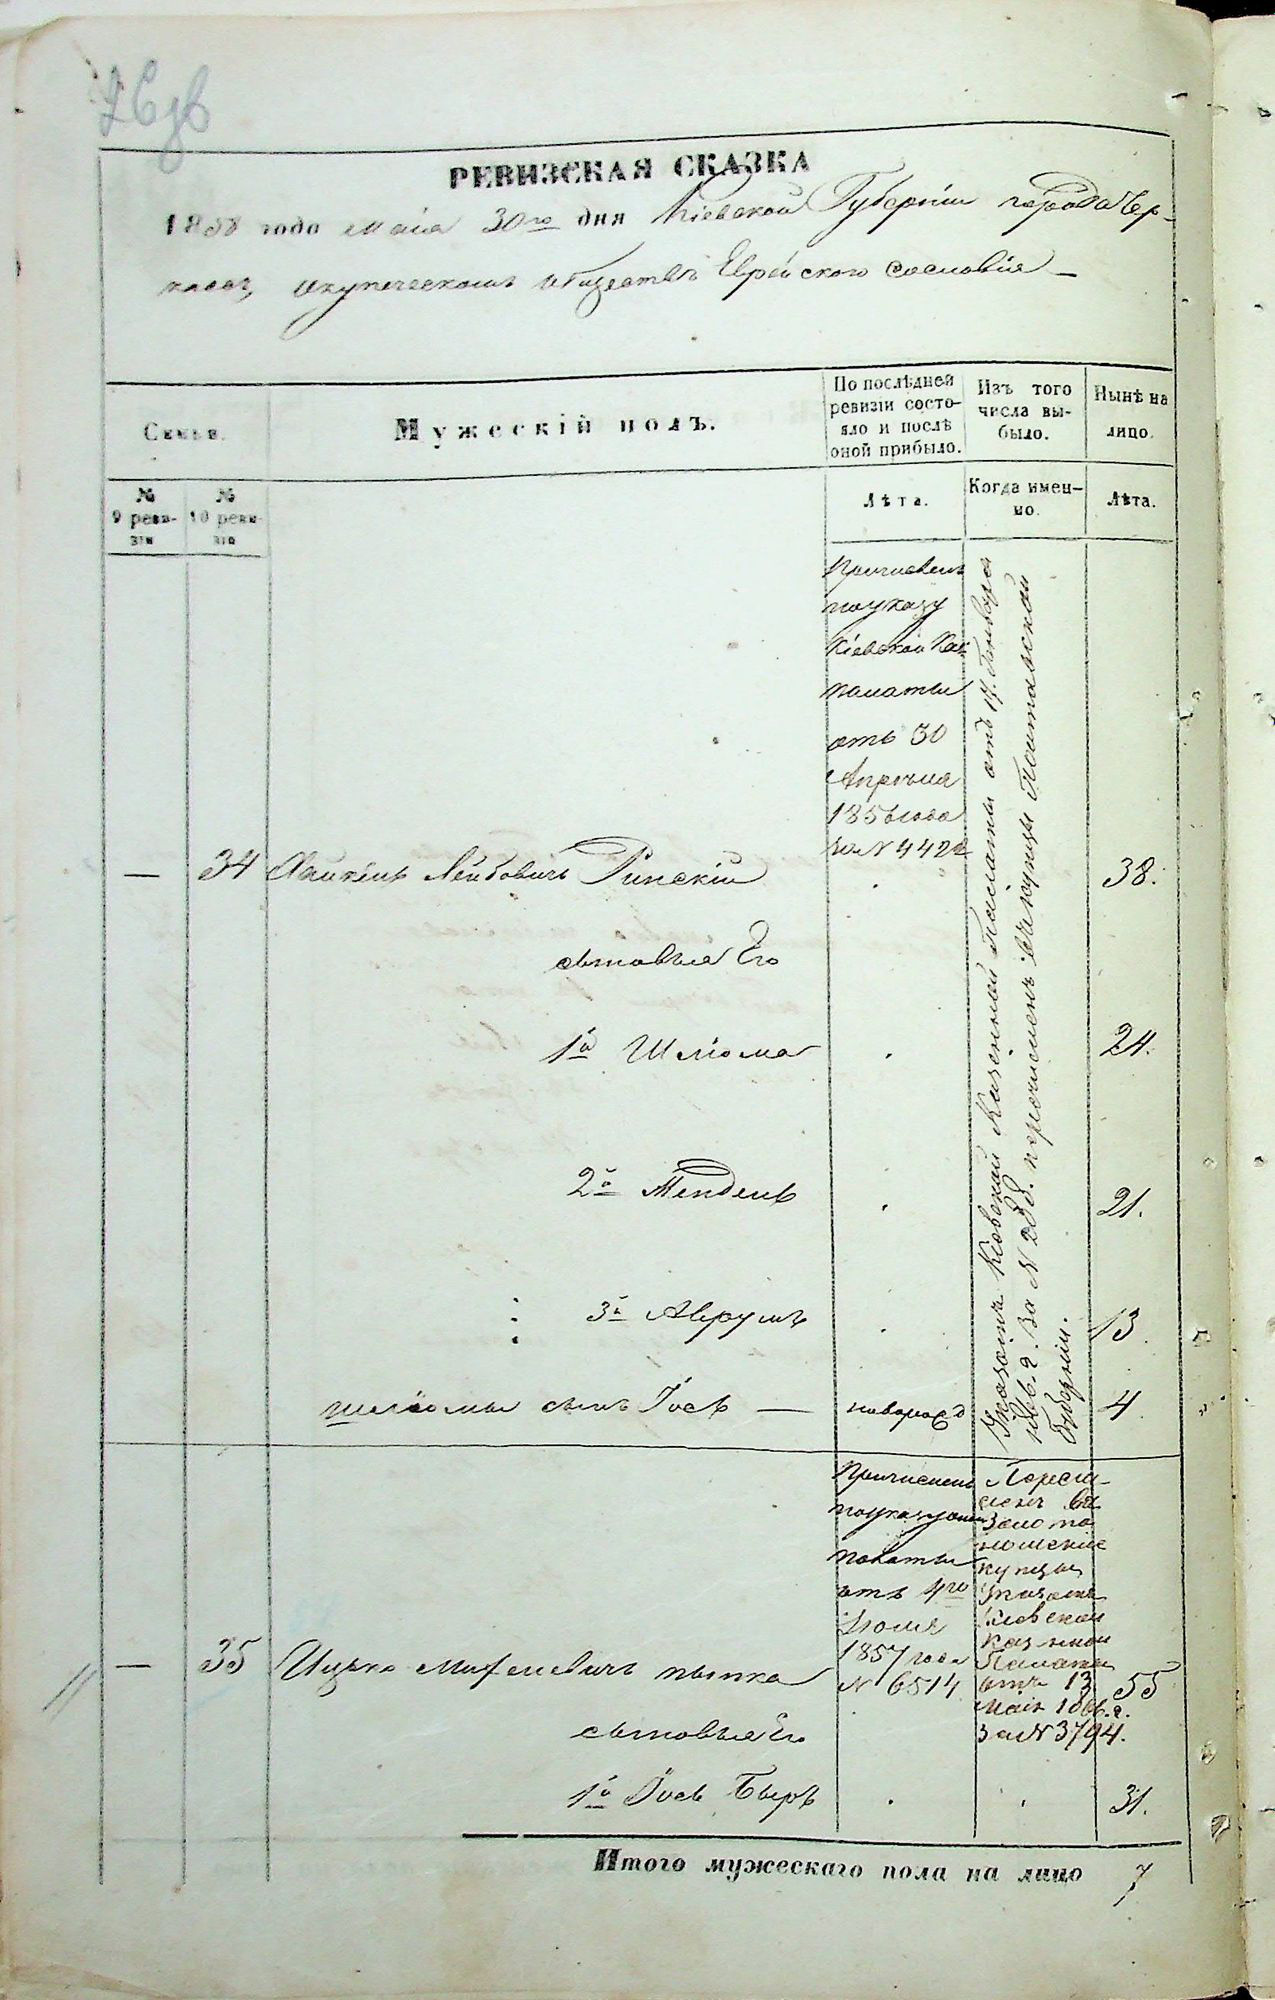 РЕВИЗСКАЯ СКАЗКА
1858 года Маія 30го дня Кіевской Губерніи города Чер-
касъ, о купеческомъ обществѣ Еврейскаго сословія
Семьи.
Мужескій полъ.
По послѣдней ревизіи состо-
яло и послѣ оной прибыло.
Изъ того числа вы-
было.
Нынѣ на лицо.
№ 9 реви-
зіи
№ 10 реви-
зіи
Лѣта.
Когда имен-
но.
Лѣта.
Причисленъ
по указу
Кіевской Каз.
палаты
отъ 30
Апрѣля
1856 года
за N 442
Указомъ Кіевской Казенной Палаты отъ 17. Генваря
186. г. за N 288. перечисленъ въ купцы Полтавской
Губерніи.
— 34 Лейбовичъ Ринскій 38.
сыновья Его
1й Шліома 24.
2й Мендель 21.
3й Аврумъ 13
Шліомы сынъ Іось — новорожд 4
Причисленъ
по указу оной
палаты
отъ 4го
Іюля
1857 года
N 6514
Перечи-
сленъ въ
Золото
ношскіе
купцы
Указомъ
Кіевской
Казенной
Палаты
отъ 13
Маія 1866. г.
за N 3794.
— 35 Ицько 55
сыновья Его
1й Іось Беръ 31.
Итого мужескаго пола на лицо 7